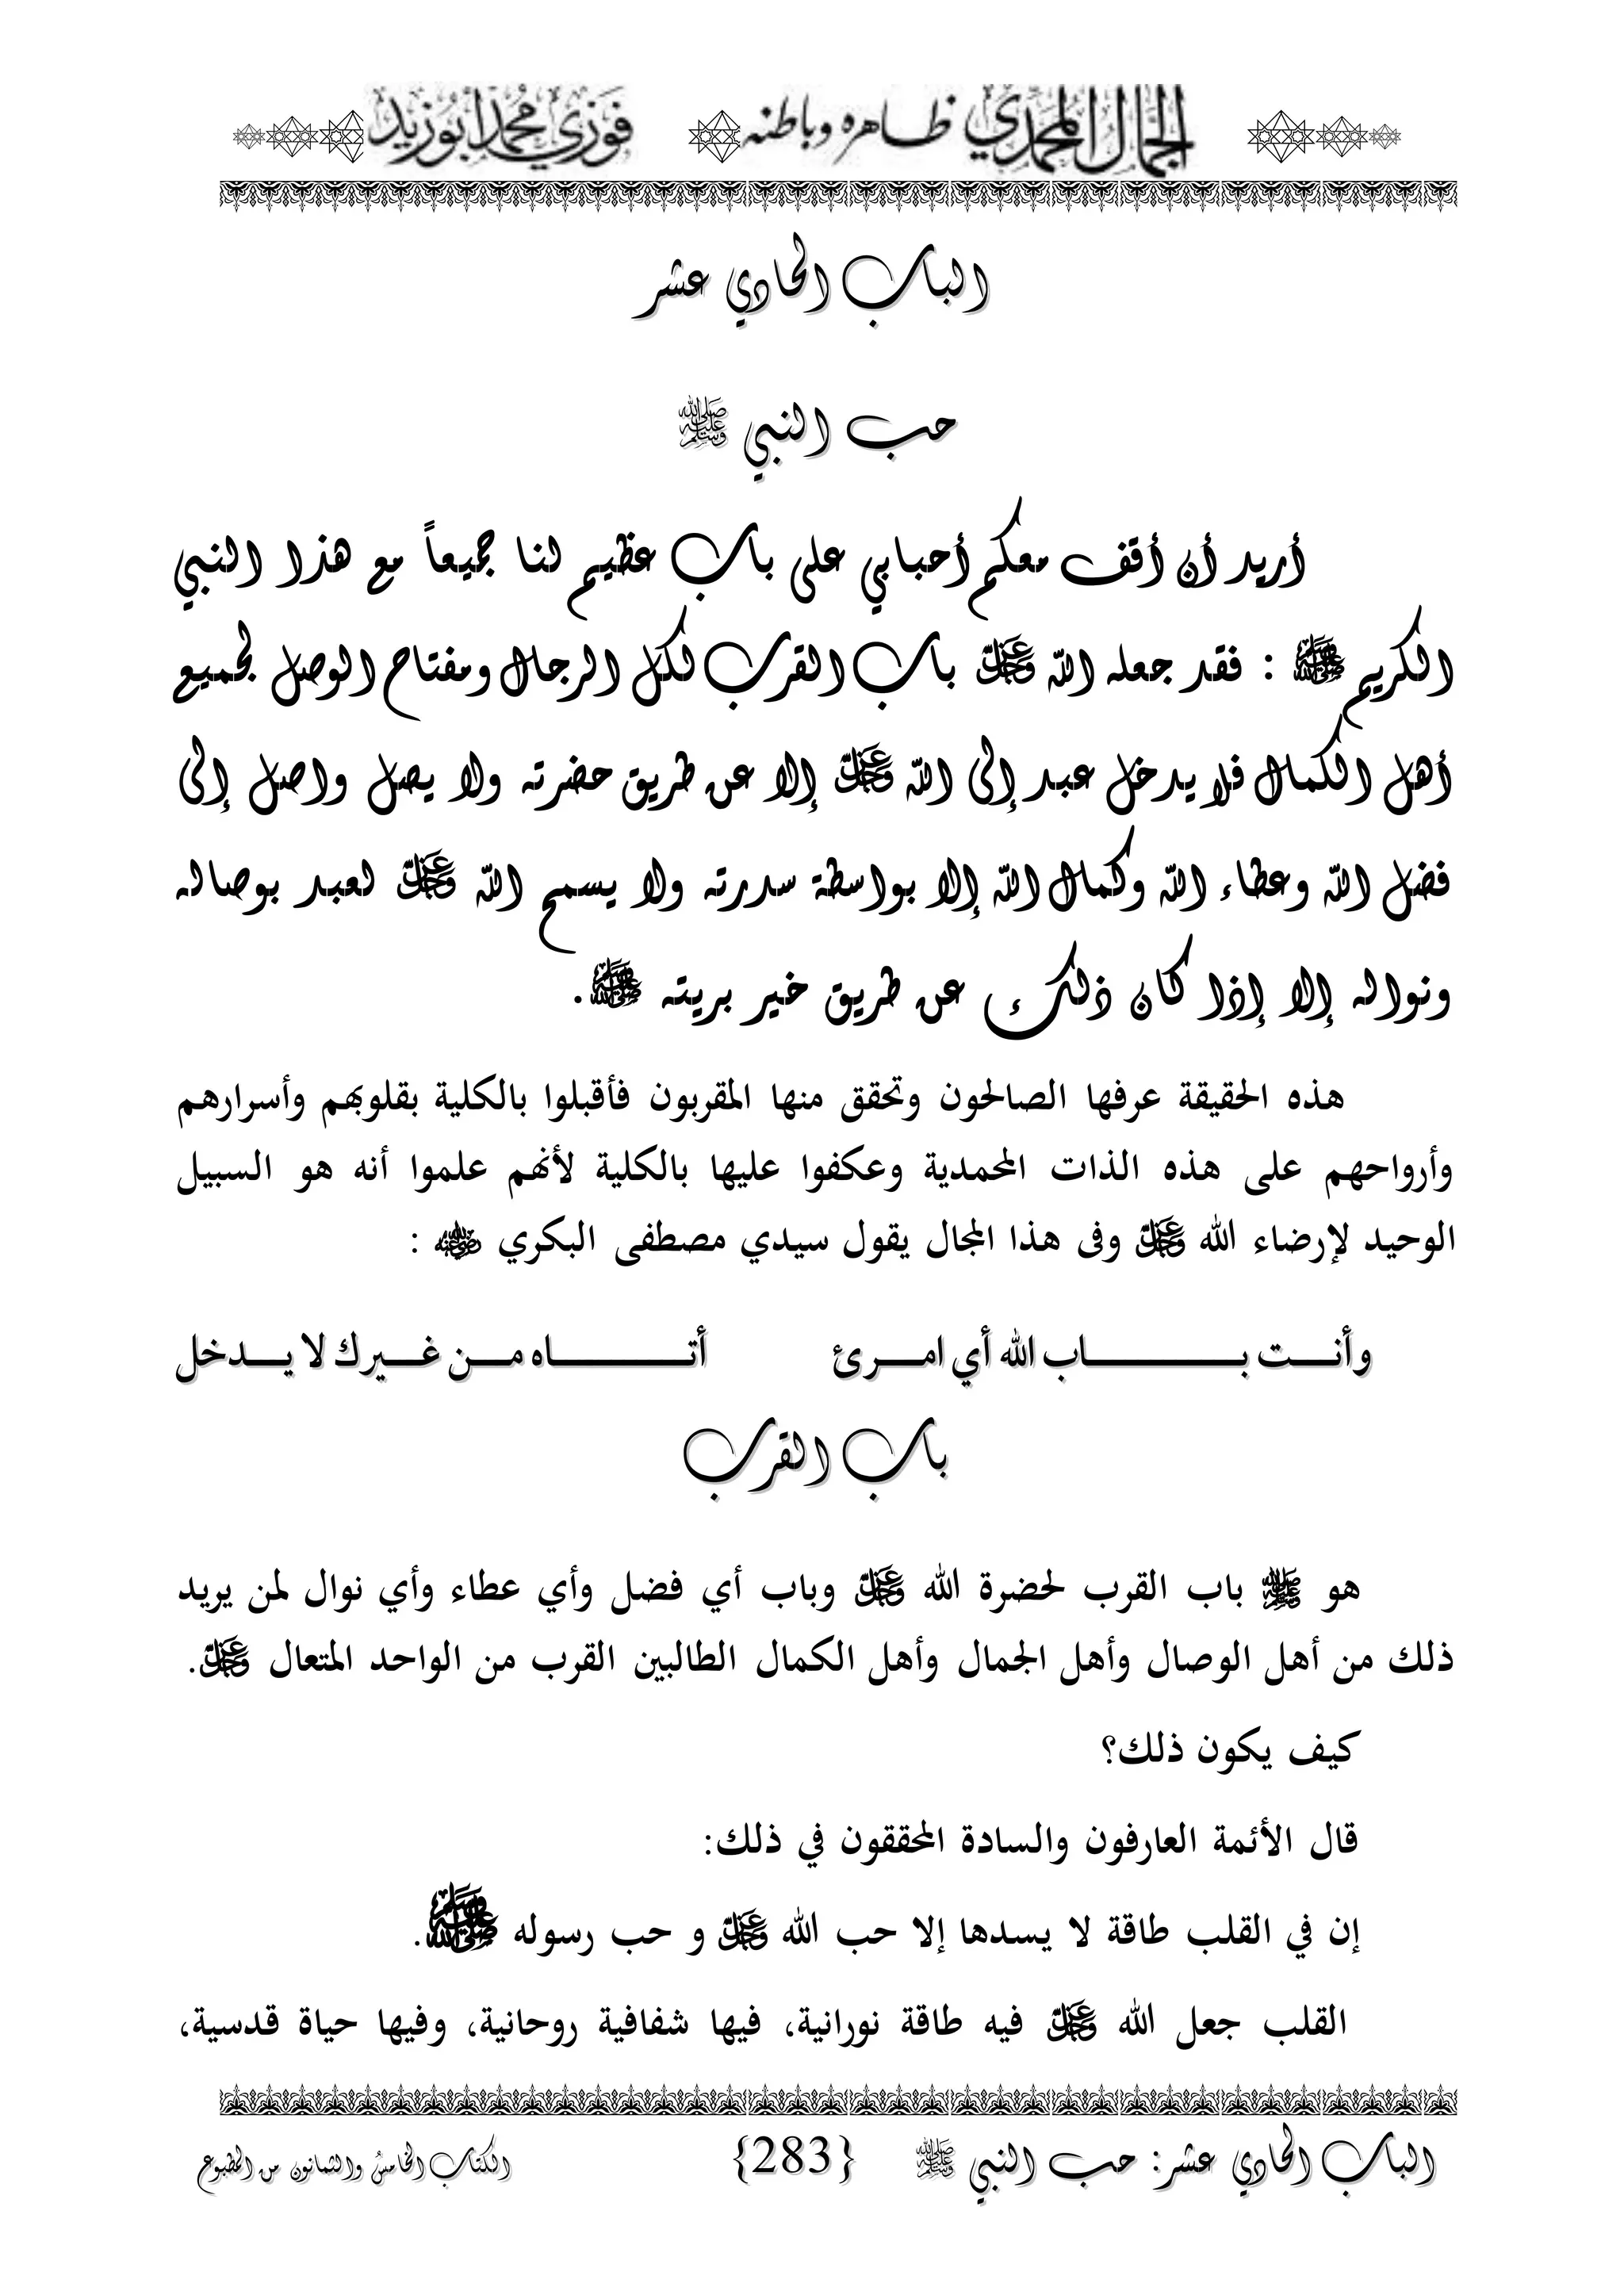 الجمال المحمدي ظاهره وباطنه فوزي محمد أبوزيد
الباب الحادي عشر
حب النبي ﷺ
أريد أن أقف معكم أحبابي على باب عظيم لنا جميعاً مع هذا النبي
الكريم ﷺ : فقد جعله الله عز وجل باب القرب لكل الرجال ومفتاح الوصل لجميع
أهل الكمال فلا يدخل عبد إلى الله عز وجل إلا عن طريق حضرته ولا يصل واصل إلى
فضل الله وعطاء الله وكمال الله إلا بواسطة سدرته ولا يسمح الله عز وجل لعبد بوصاله
ونواله إلا إذا كان ذلك عن طريق خير بريته ﷺ.
هذه الحقيقة عرفها الصالحون وتحقق منها المقربون فأقبلوا بالكلية بقلوبهم وأسرارهم
وأرواحهم على هذه الذات المحمدية وعكفوا عليها بالكلية لأنهم علموا أنه هو السبيل
الوحيد لإرضاء الله عز وجل وفى هذا المجال يقول سيدي مصطفى البكري رضي الله عنه :
وأنت باب الله أي امرئ أتاه من غيرك لا يدخل
باب القرب
هو ﷺ باب القرب لحضرة الله عز وجل وباب أي فضل وأي عطاء وأي نوال لمن يريد
ذلك من أهل الوصال وأهل الجمال وأهل الكمال الطالبين القرب من الواحد المتعال عز وجل.
كيف يكون ذلك؟
قال الأئمة العارفون والسادة المحققون في ذلك:
إن في القلب طاقة لا يسدها إلا حب الله عز وجل و حب رسوله ﷺ.
القلب جعل الله عز وجل فيه طاقة نورانية، فيها شفافية روحانية، وفيها حياة قدسية،
الباب الحادي عشر: حب النبي ﷺ {283} الكتاب الخامس والثمانون من المطبوع